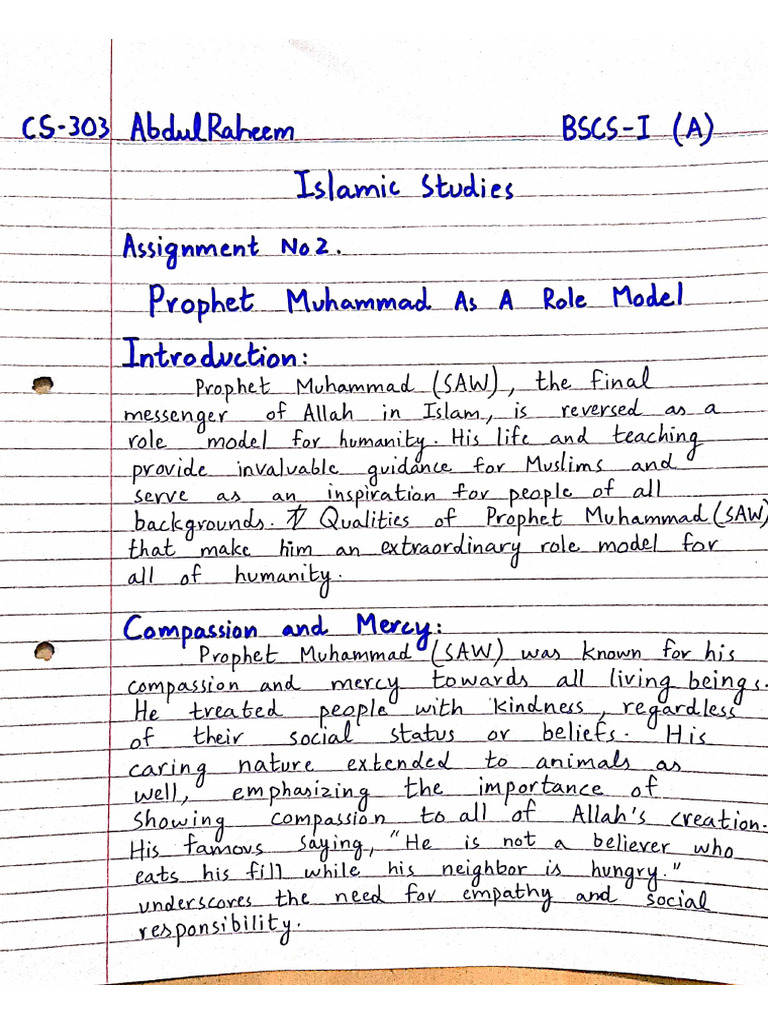 CS-303 AbdulRaheem BSCS-I (A)
Islamic Studies
Assignment No2.
Prophet Muhammad As A Role Model
Introduction:
Prophet Muhammad (SAW), the final
messenger of Allah in Islam, is reversed as a
role model for humanity. His life and teaching
provide invaluable guidance for Muslims and
serve as an inspiration for people of all
backgrounds. Qualities of Prophet Muhammad (SAW)
that make him an extraordinary role model for
all of humanity.
Compassion and Mercy:
Prophet Muhammad (SAW) was known for his
compassion and mercy towards all living beings.
He treated people with kindness, regardless
of their social status or beliefs. His
caring nature extended to animals as
well, emphasizing the importance of
showing compassion to all of Allah's creation.
His famous saying, "He is not a believer who
eats his fill while his neighbor is hungry."
underscores the need for empathy and social
responsibility.